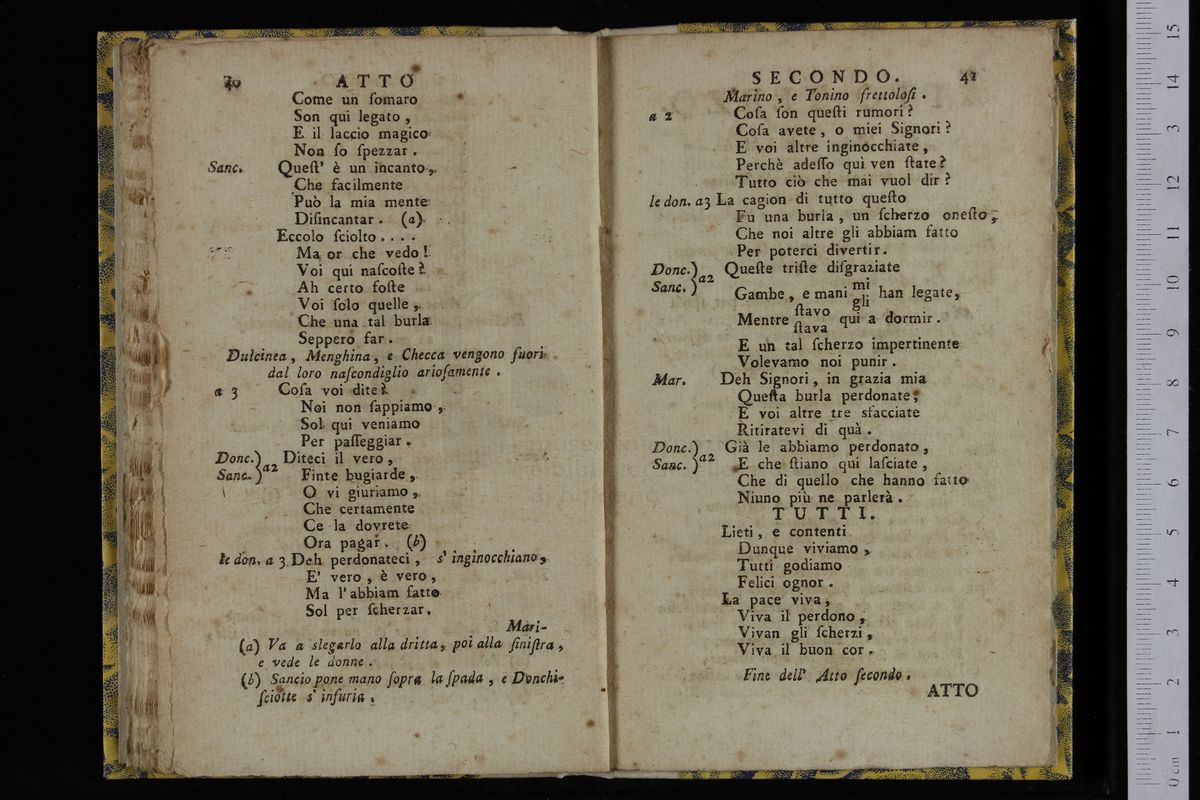 40 ATTO
Come un ſomaro
Son qui legato,
E il laccio magico
Non ſo ſpezzar.
Sanc. Queſt' è un incanto,
Che facilmente
Può la mia mente
Diſincantar. (a)
Eccolo ſciolto....
Ma or che vedo!
Voi qui naſcoſte?
Ah certo foſte
Voi ſolo quelle,
Che una tal burla
Seppero far.
Dulcinea, Menghina, e Checca vengono fuori
dal loro naſcondiglio arioſamente.
a 3 Coſa voi dite?
Noi non ſappiamo,
Sol qui veniamo
Per paſſeggiar.
Donc.) Diteci il vero,
Sanc.) a2 Finte bugiarde,
O vi giuriamo,
Che certamente
Ce la dovrete
Ora pagar. (b)
le don. a 3 Deh perdonateci, s' inginocchiano,
E' vero, è vero,
Ma l'abbiam fatto
Sol per ſcherzar.
Mari-
(a) Va a slegarlo alla dritta, poi alla ſiniſtra,
e vede le donne.
(b) Sancio pone mano ſopra la ſpada, e Donchi-
ſciotte s' infuria.
SECONDO. 41
Marino, e Tonino frettoloſi.
a 2 Coſa ſon queſti rumori?
Coſa avete, o miei Signori?
E voi altre inginocchiate,
Perchè adeſſo quì ven ſtate?
Tutto ciò che mai vuol dir?
le don. a3 La cagion di tutto queſto
Fu una burla, un ſcherzo oneſto,
Che noi altre gli abbiam fatto
Per poterci divertir.
Donc.) Queſte triſte diſgraziate
Sanc.) a2 Gambe, e mani mi gli han legate,
Mentre ſtavo ſtava qui a dormir.
E un tal ſcherzo impertinente
Volevamo noi punir.
Mar. Deh Signori, in grazia mia
Queſta burla perdonate;
E voi altre tre sfacciate
Ritiratevi di quà.
Donc.) Già le abbiamo perdonato,
Sanc.) a2 E che ſtiano qui laſciate,
Che di quello che hanno fatto
Niuno più ne parlerà.
TUTTI.
Lieti, e contenti
Dunque viviamo,
Tutti godiamo
Felici ognor.
La pace viva,
Viva il perdono,
Vivan gli ſcherzi,
Viva il buon cor.
Fine dell' Atto ſecondo.
ATTO
0 cm 1 2 3 4 5 6 7 8 9 10 11 12 13 14 15